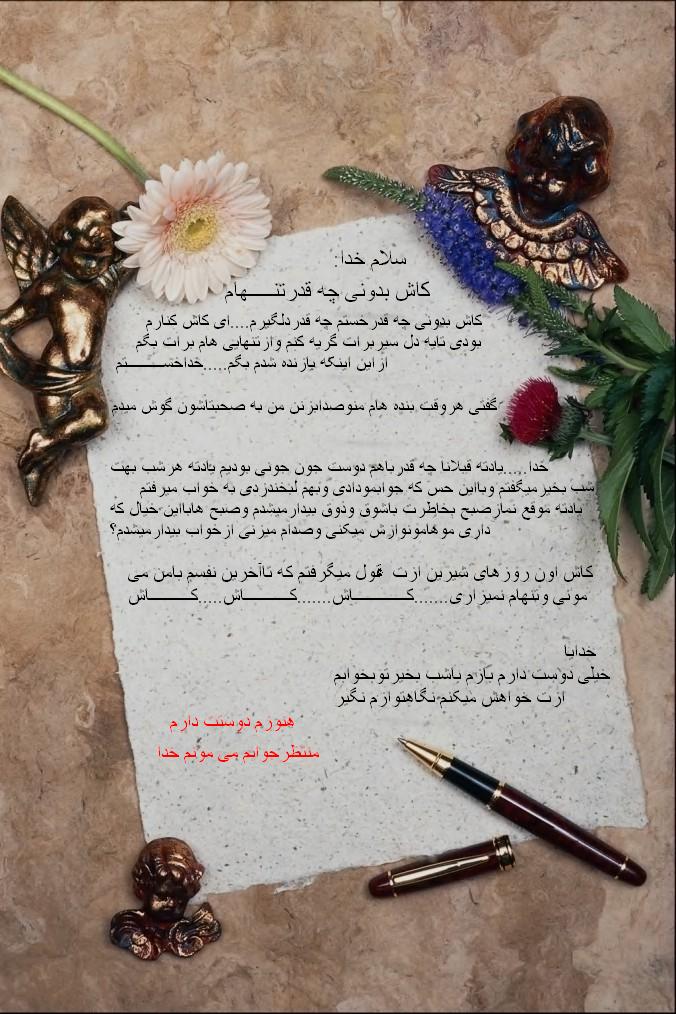 سلام خدا:
کاش بدونی چه قدرتنـــــهام
کاش بدونی چه قدرخستم چه قدردلگیرم....ای کاش کنارم
بودی تایه دل سیربرات گریه کنم وازتنهایی هام برات بگم
ازاین اینکه بازنده شدم بگم.....خداخســـــــتم
گفتی هروقت بنده هام منوصدابزنن من به صحبتاشون گوش میدم
خدا.....یادته قبلانا چه قدرباهم دوست جون جونی بودیم یادته هرشب بهت
شب بخیرمیگفتم وبااین حس که جوابمودادی وبهم لبخندزدی به خواب میرفتم
یادته موقع نمازصبح بخاطرت باشوق وذوق بیدارمیشدم وصبح هابااین خیال که
داری موهامونوازش میکنی وصدام میزنی ازخواب بیدارمیشدم؟
کاش اون روزهای شیرین ازت قول میگرفتم که تاآخرین نفسم بامن می
مونی وتنهام نمیزاری.......کـــــــــاش.......کـــــــــاش.....کـــــــــاش
خدایا
خیلی دوست دارم بازم باشب بخیرتوبخوابم
ازت خواهش میکنم نگاهتوازم نگیر
هنوزم دوست دارم
منتظرجوابم می مونم خدا